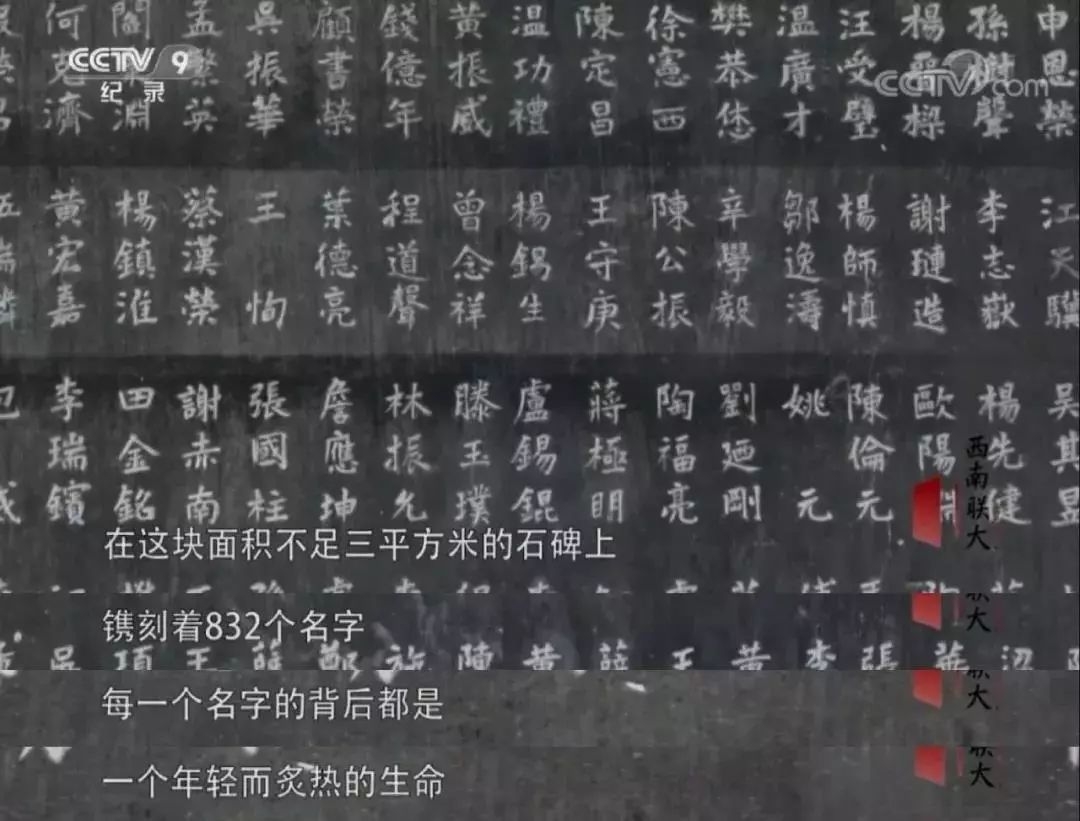 CCTV 9
纪录
CCTV.com
申恩榮
孫樹聲
楊
樑
汪受璧
溫廣才
樊恭烋
徐憲西
陳定昌
溫功禮
黃振威
錢億年
顧書榮
吳振華
孟繁英
閻
淵
何克濟
江天驥
李志嶽
謝璉造
楊師慎
鄒逸濤
辛學毅
陳公振
王守庚
楊錫生
曾念祥
程道聲
葉德亮
王恂
蔡漢榮
楊鎮淮
黃宏嘉
吳其昱
楊先健
歐陽
陳倫元
姚元
劉廼剛
陶福亮
蔣極明
盧錫錕
滕玉璞
林振允
詹應坤
張國柱
謝赤南
田金銘
李瑞鑌
西南联大
在这块面积不足三平方米的石碑上
镌刻着832个名字
每一个名字的背后都是
一个年轻而炙热的生命